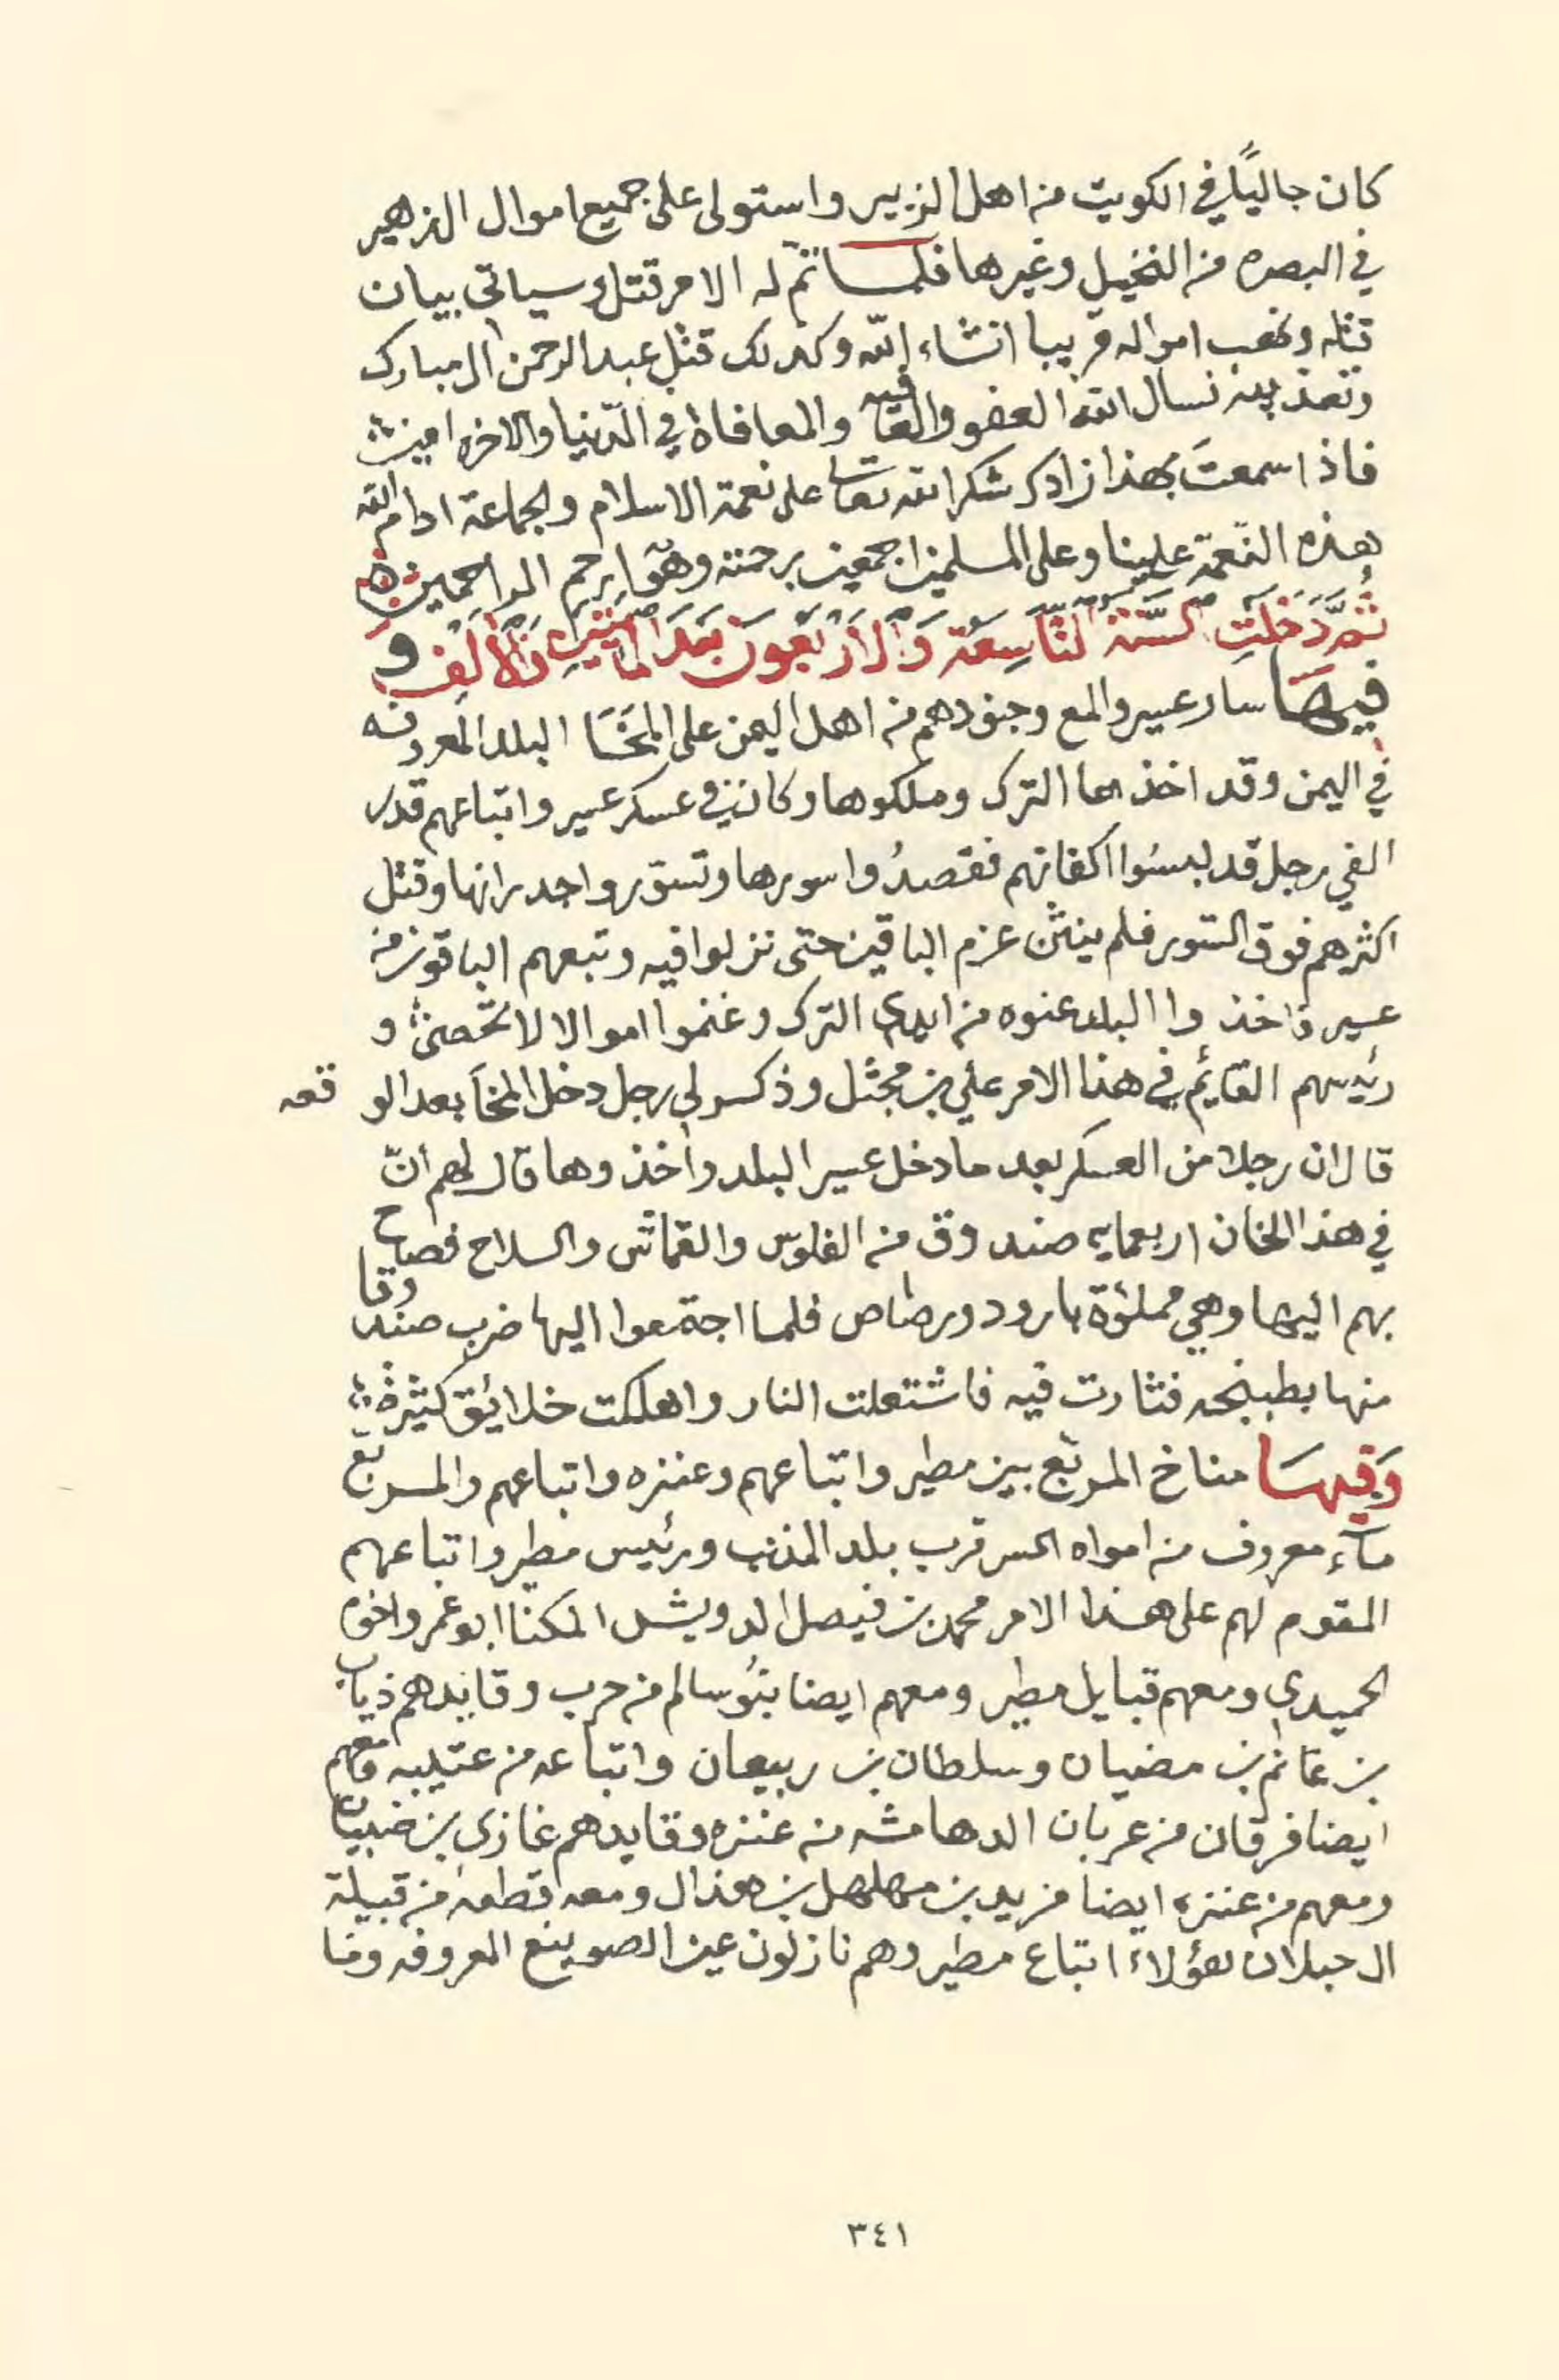 كان جاليًا في الكويت من اهل الزبير واستولى على جميع اموال الزهير
في البصره من النخيل وغيرها فلما تم له الامر قتل وسياتي بيان
قتله ونهب امواله قريبا انشاء الله وكذلك قتل عبد الرحمن المبارك
وتعذيبه نسال الله العفو والعافيه والمعافاة في الدّنيا والاخره امين
فاذا سمعتَ بهذا زادك شكر الله تعالى على نعمة الاسلام والجماعة ادام الله
هذه النّعمة علينا وعلى المسلمين اجمعين برحمته وهو ارحم الراحمين
ثُمَّ دَخَلَتِ السَّنَةُ التَّاسِعَة وَالأَرْبَعُونَ بَعدَ المائتين وَالأَلْف و
فيهَا سار عسير والمع وجنودهم من اهل اليمن على المَخَا البلد المعروفه
في اليمن وقد اخذها الترك وملكوها وكان في عسكر عسير واتباعهم قدر
الفي رجل قد لبسُوا اكفانهم فقصدُوا سورها وتسوّروا جدرانها وقتل
اكثرهم فوق السّور فلم ينثن عزم الباقين حتى نزلوا فيه وتبعهم الباقون من
عسير فاخذوا البلد عنوه من ايدي الترك وغنموا اموالا لا تحصى و
رئيسهم القايم في هذا الامر علي بن مجثل وذكر لي رجل دخل المخَا بعد الو قعه
قال ان رجلا من العسكر بعد ما دخل عسير البلد واخذوها قال لهم انّ
في هذا الخان اربعمايه صندوق من الفلوس والقماش والسلاح فصاح
بهم اليها وهي مملؤة بارود ورصاص فلما اجتمعوا اليها ضرب صندوقا
منها بطبنجه فثارت فيه فاشتعلت النار واهلكت خلائق كثيره
وَفيهَا مناخ المربّع بين مطير واتباعهم وعنزه واتباعهم والمربّع
مآء معروف من امواه السر قرب بلد المذنب ورئيس مطير واتباعهم
المقوم لهم على هذا الامر محمد بن فيصل الدويش المكنا ابو عمر واخوه
الحميدي ومعهم قبايل مطير ومعهم ايضا بنُو سالم من حرب وقايدهم ذياب
بن غانم بن مضيان وسلطان بن ربيعان واتباعه من عتيبه ومعهم
ايضا فرقان من عربان الدهامشه من عنزه وقايدهم غازي بن ضبيان
ومعهم من عنزه ايضا مزيد بن مهلهل بن هذال ومعه قطعه من قبيلة
ال حبلان هؤلاء اتباع مطير وهم نازلون عين الصوينع المعروفه وما
٣٤١